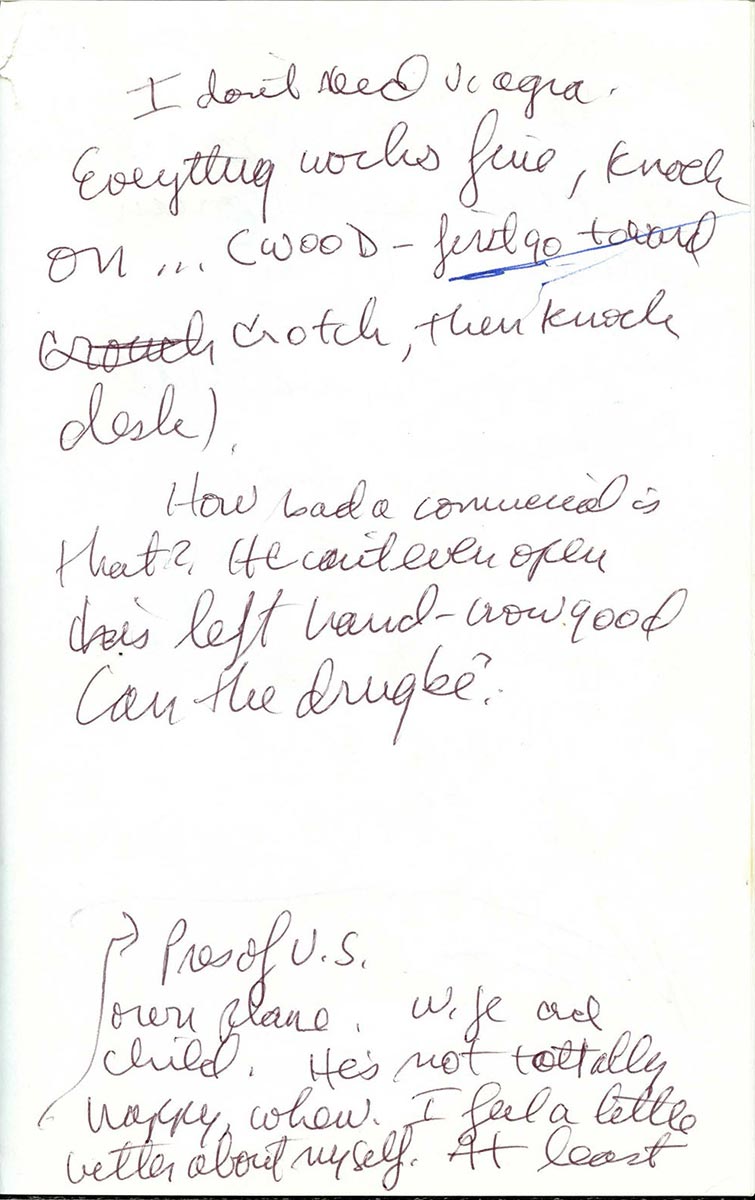 I don't need Viagra.
Everything works fine, knock
on ... (WOOD - first go toward
crouch crotch, then knock
desk).
How bad a commercial is
that? He can't even open
his left hand - how good
can the drug be?
Pres of U.S.
own plane. Wife and
child. He's not tottally
happy, whew. I feel a little
better about myself. At least